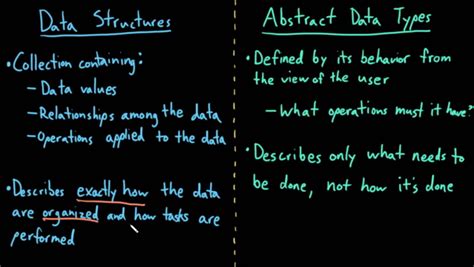 Data Structures
• Collection containing:
– Data values
– Relationships among the data
– Operations applied to the data
• Describes exactly how the data
are organized and how tasks are
performed
Abstract Data Types
• Defined by its behavior from
the view of the user
– What operations must it have?
• Describes only what needs to
be done, not how it's done